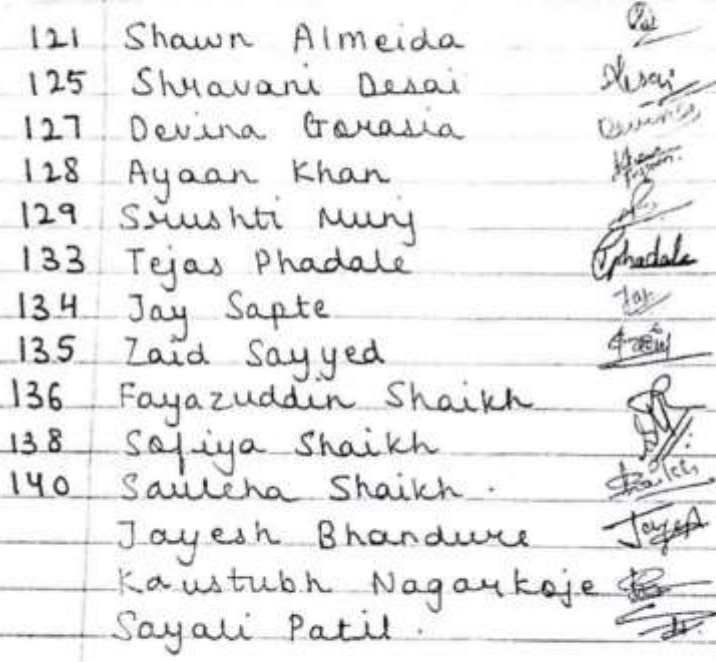 121 Shawn Almeida
125 Shravani Desai Desai
127 Devina Gorasia
128 Ayaan Khan
129 Srushti Munj
133 Tejas Phadale Tphadale
134 Jay Sapte Jay
135 Zaid Sayyed
136 Fayazuddin Shaikh
138 Sofiya Shaikh
140 Sauleha Shaikh.
Jayesh Bhandure Jayesh
Kaustubh Nagarkoje
Sayali Patil.